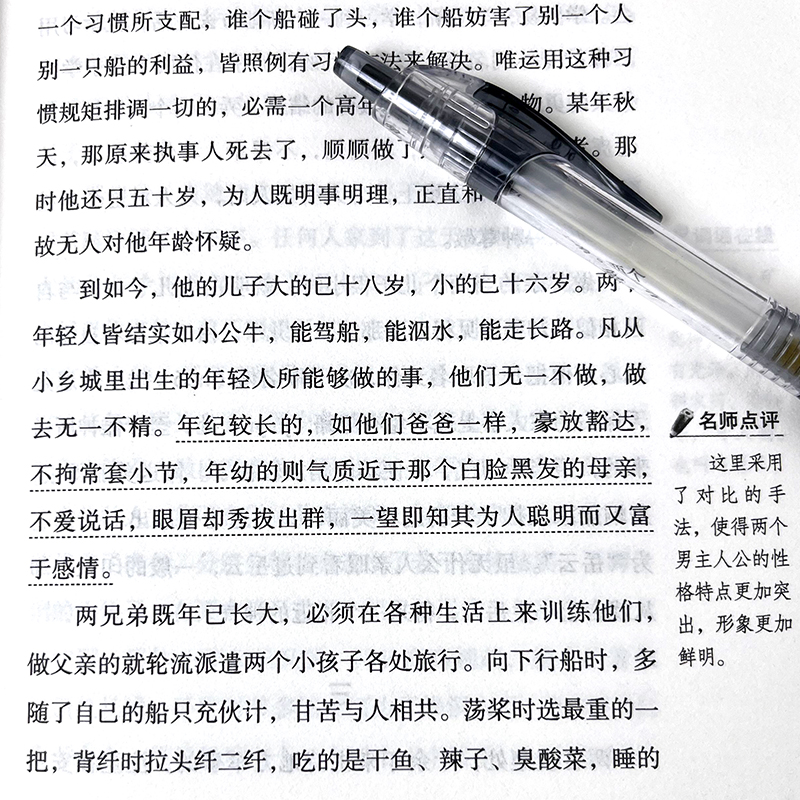 一个习惯所支配，谁个船碰了头，谁个船妨害了别一个人
别一只船的利益，皆照例有习 法来解决。唯运用这种习
惯规矩排调一切的，必需一个高年 物。某年秋
天，那原来执事人死去了，顺顺做了 。那
时他还只五十岁，为人既明事明理，正直和
故无人对他年龄怀疑。
到如今，他的儿子大的已十八岁，小的已十六岁。两个
年轻人皆结实如小公牛，能驾船，能泅水，能走长路。凡从
小乡城里出生的年轻人所能够做的事，他们无一不做，做
去无一不精。年纪较长的，如他们爸爸一样，豪放豁达，
不拘常套小节，年幼的则气质近于那个白脸黑发的母亲，
不爱说话，眼眉却秀拔出群，一望即知其为人聪明而又富
于感情。
两兄弟既年已长大，必须在各种生活上来训练他们，
做父亲的就轮流派遣两个小孩子各处旅行。向下行船时，多
随了自己的船只充伙计，甘苦与人相共。荡桨时选最重的一
把，背纤时拉头纤二纤，吃的是干鱼、辣子、臭酸菜，睡的
名师点评
这里采用
了对比的手
法，使得两个
男主人公的性
格特点更加突
出，形象更加
鲜明。